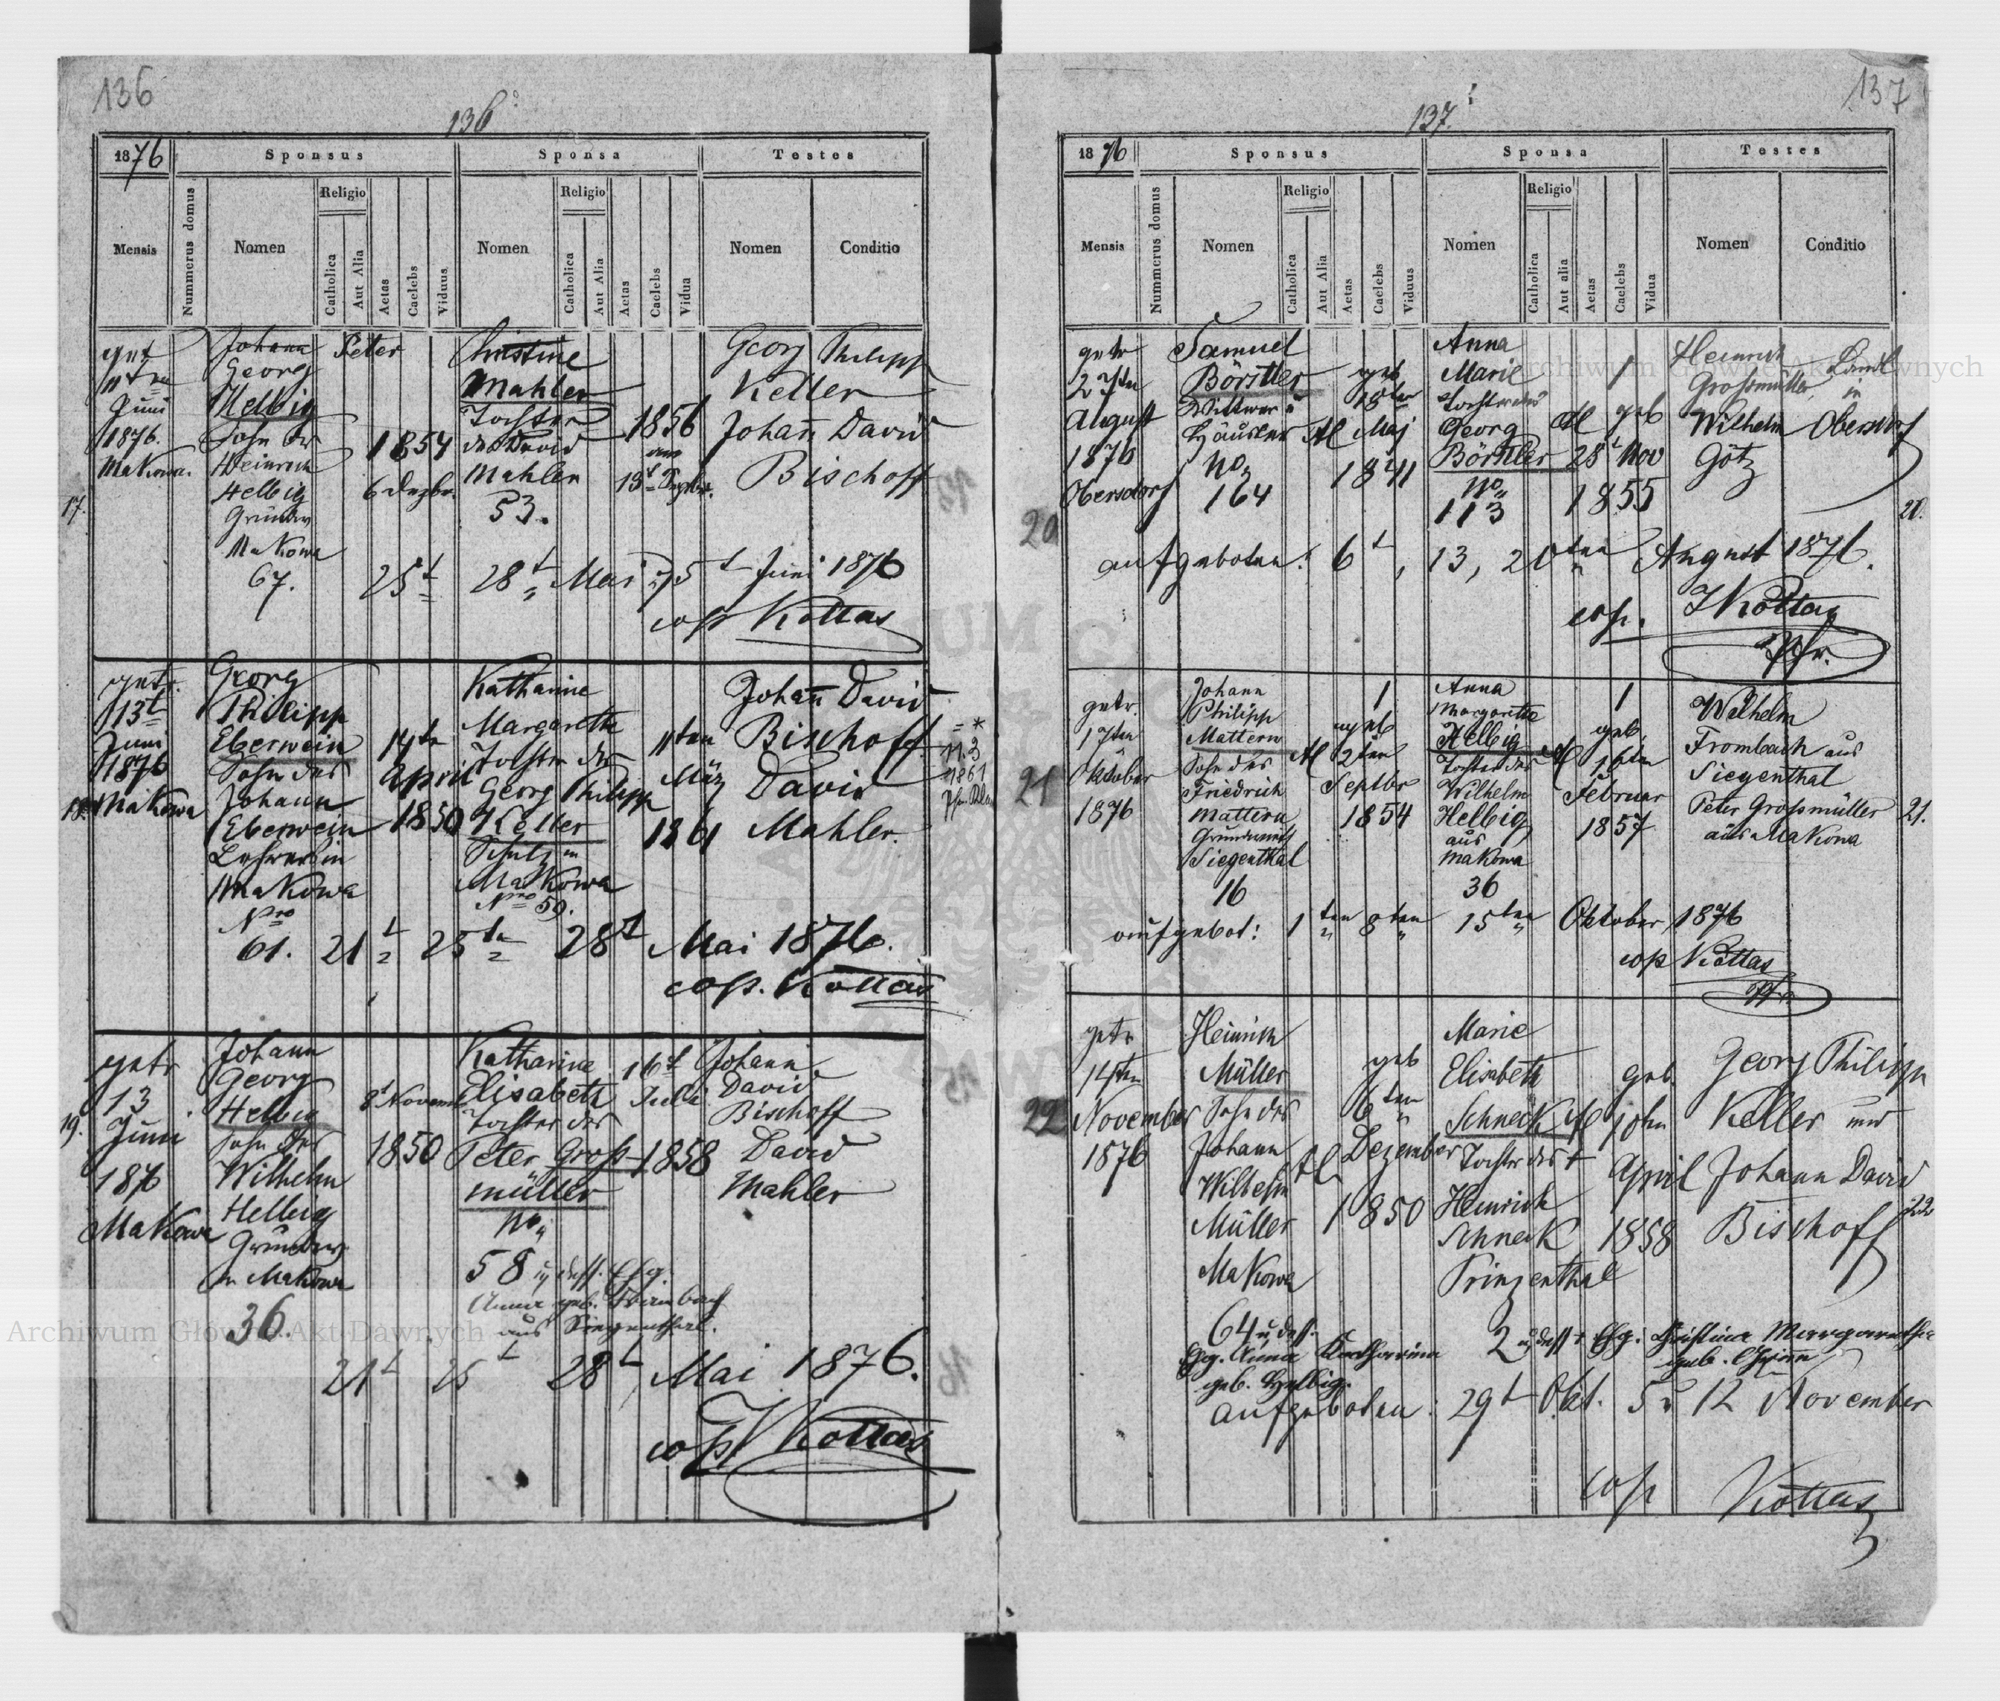 136
136
1876
Sponsus
Sponsa
Testes
Mensis
Nummerus domus
Nomen
Religio
Catholica
Aut Alia
Aetas
Caelebs
Viduus
Nomen
Religio
Catholica
Aut Alia
Aetas
Caelebs
Vidua
Nomen
Conditio
17.
getr
Juni
1876.
Makowa.
Johann Peter
Georg
Helbig
Sohn des
Heinrich
Helbig
Makowa
67.
1854
6 Dezbr.
Christine
Mahler
Tochter
des David
Mahler
53.
1856
Georg Philipp
Keller
Johann David
Bischoff
25t 28t Mai 5t Juni 1876
cop Kottas
18.
getr.
13t
Juni
1876
Makowa
Georg
Philipp
Eberwein
Sohn des
Johann
Eberwein
Lehrer in
Makowa
Nro
61.
14ten
April
1850
Katharine
Margareth
Tochter des
Georg Philipp
Keller
Schulz in
Makowa
Nro 59.
11ten
März
1861
Johann David
Bischoff
David
Mahler.
= *
11.3
1861
21t 25ten 28t Mai 1876.
cop. Kottas
19.
getr
13.
Juni
1876
Makowa
Johann
Georg
Helbig
Sohn des
Wilhelm
Helbig
in Makowa
36.
8t Novemb
1850
Katharine
Elisabeth
Tochter des
Peter Groß-
müller
No
58 u. dess. Ehg.
Anna geb. Frambach
aus Siegenthal.
16t
Juli
1858
Johann
David
Bischoff
David
Mahler
21t 25t 28t Mai 1876.
cop Kottas
137
137.
1876
Sponsus
Sponsa
Testes
Mensis
Nummerus domus
Nomen
Religio
Catholica
Aut Alia
Aetas
Caelebs
Viduus
Nomen
Religio
Catholica
Aut alia
Aetas
Caelebs
Vidua
Nomen
Conditio
20
getr
27ten
August
1876
Obersdorf
Samuel
Börstler
Wittwer u
Häusler
No
164
AC
geb
Maj
1841
Anna
Marie
Tochter des
Georg
Börstler
No
113
AC
geb
28t Nov
1855
Heinrich
Großmüller
Wilhelm
Götz
in
Obersdorf
20.
aufgeboten: 6t, 13, 20ten August 1876.
cop. J Kottas
Pfr.
21
getr.
17ten
Oktober
1876
Johann
Philipp
Mattern
Sohn des
Friedrich
Mattern
Siegenthal
16
1
AC
geb
2ten
Septbr
1854
Anna
Margarethe
Helbig
Tochter des
Wilhelm
Helbig
aus
Makowa
36
1
AC
geb.
16ten
Februar
1857
Wilhelm
Frombach aus
Siegenthal
Peter Großmüller
aus Makowa
21.
aufgebot: 1ten 8ten 15ten Oktober 1876
cop Kottas
Pfr
22
getr
14ten
November
1876
Heinrich
Müller
Sohn des
Johann
Wilhelm
Müller
Makowa
64 u. dess.
Ehg. Anna Katharina
geb. Helbig.
AC
geb
6ten
Dezember
1850
Marie
Elisabeth
Schneck
Tochter des †
Heinrich
Schneck
Prinzenthal
2 u. dess † Ehg: Christina Margaretha
AC
geb.
10ten
April
1858
Georg Philipp
Keller und
Johann David
Bischoff
22
aufgeboten: 29t Okt. 5 u 12 November
cop Kottas
Archiwum Główne Akt Dawnych
Archiwum Główne Akt Dawnych